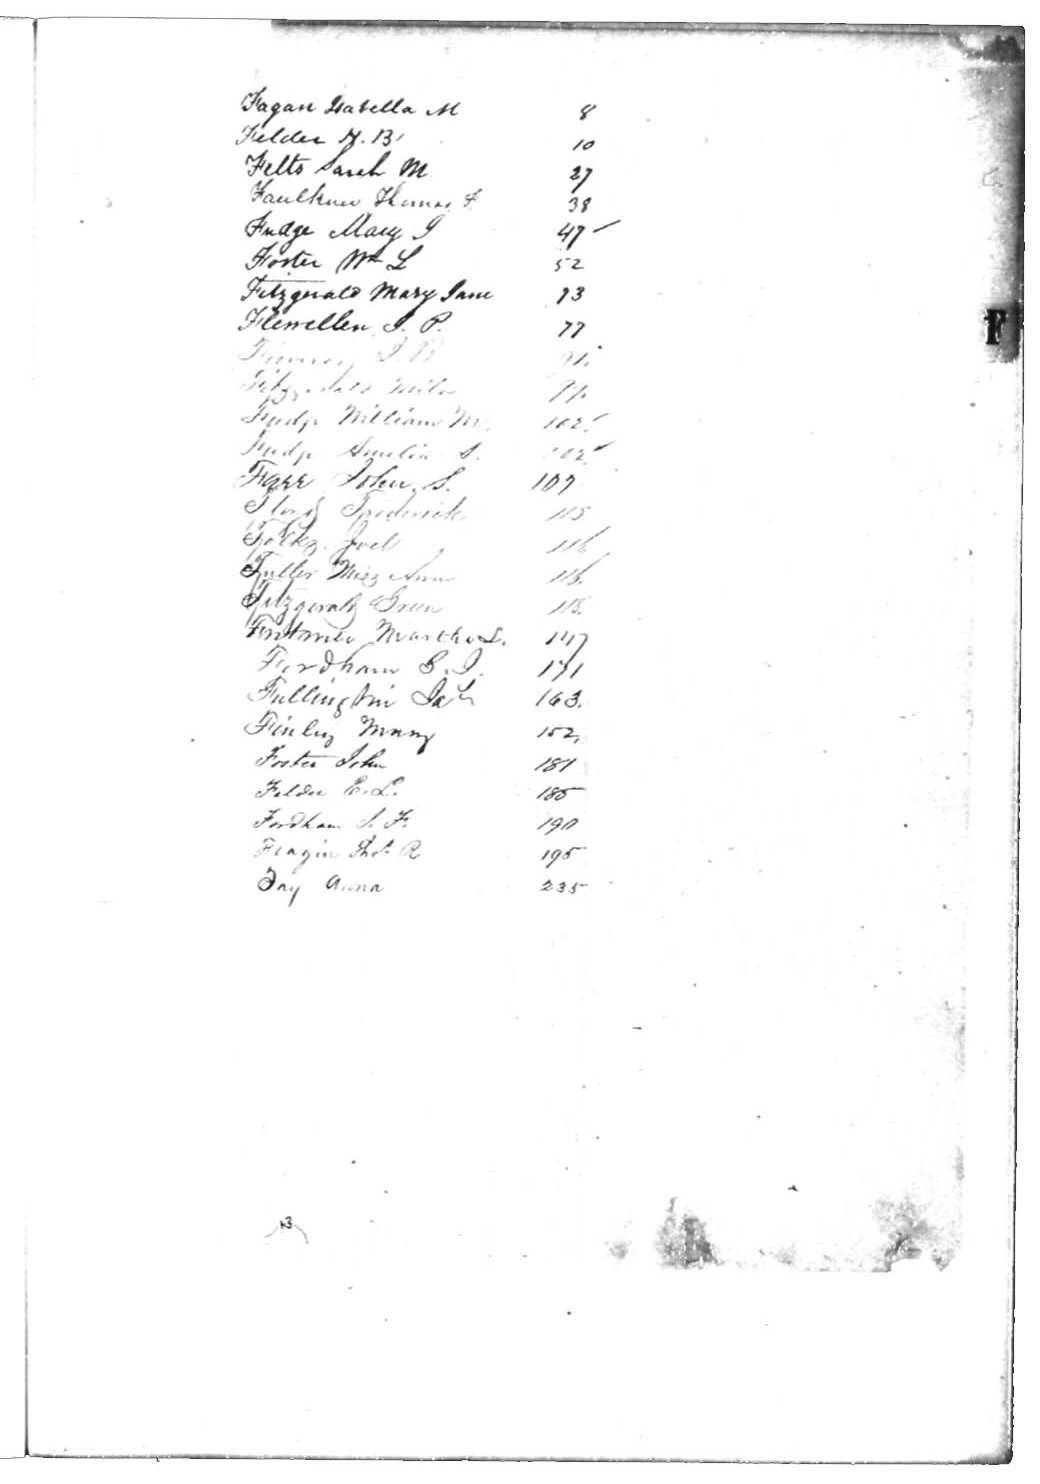 Fagan Isabella M 8
Felder H. B. 10
Felts Sarah M. 27
Faulkner Thomas F 38
Fudge Mary J 47
Foster Wm L 52
Fitzgerald Mary Jane 73
Flewellen J. P. 77
F
Fitzgerald
Fudge William M. 102
Fudge Amelia S. 102
Farr John. S. 107
Floyd Frederick 115
Joel 116
Fuller Miss Ann 116.
Fitzgerald Green 118.
Martha L. 147
Fordham B. J. 171
Fullington 163.
Finley Mary 152,
Foster John 181
Felder E. L. 185
Fordham J. F. 190
Feagin Thos R 195
Fay Anna 235